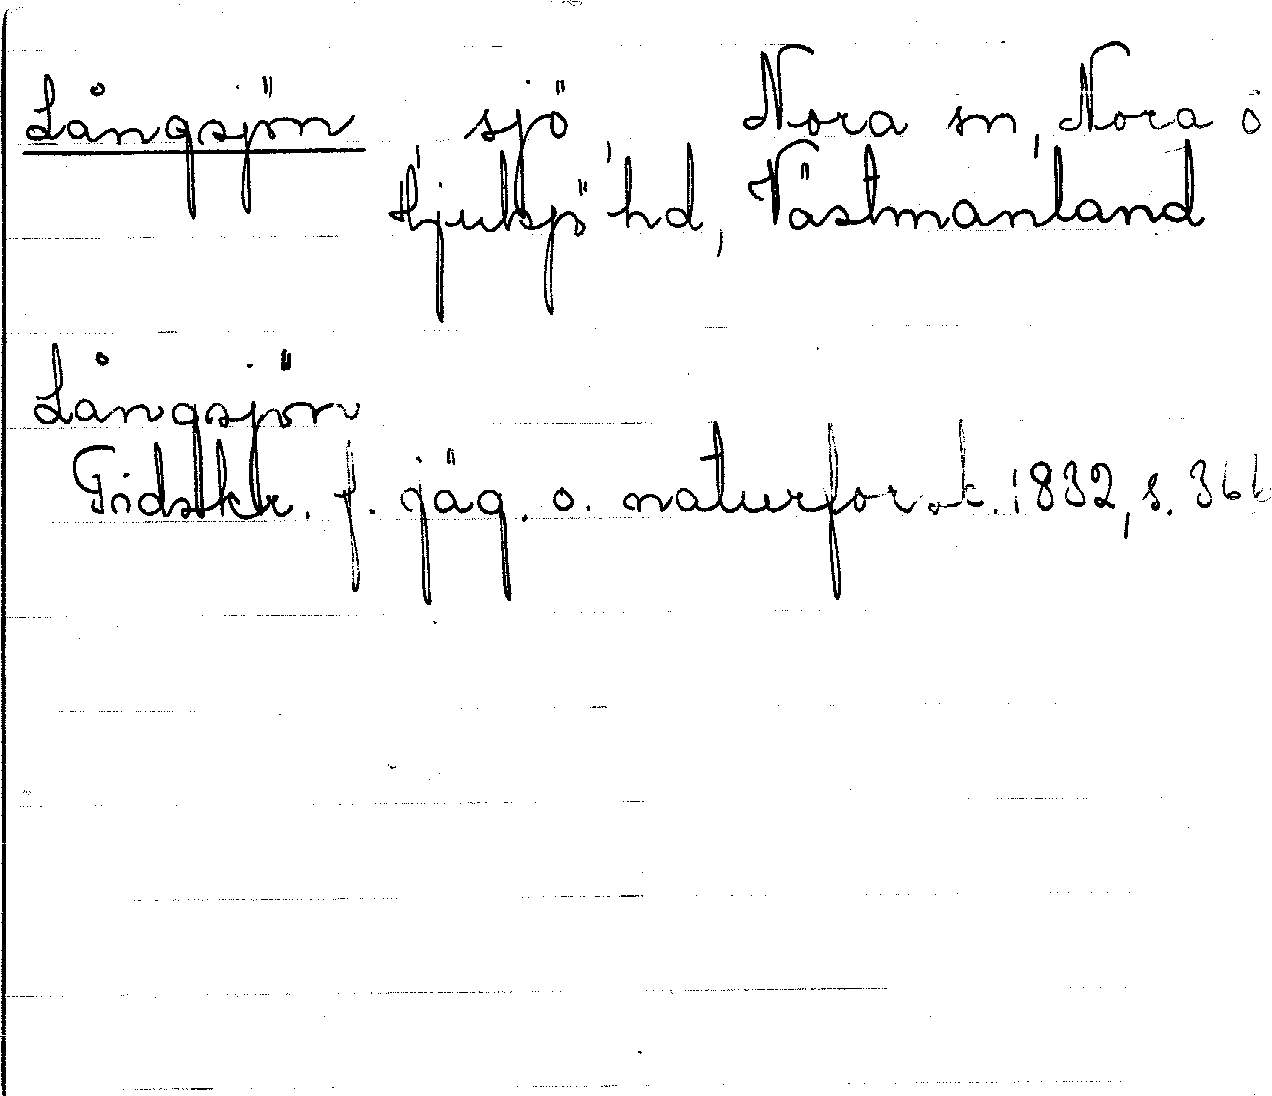 Långsjön sjö Nora sn, Nora o
Hjulsjö hd, Västmanland
Långsjön
Tidskr. f. jäg. o. naturforsk. 1832, s. 366